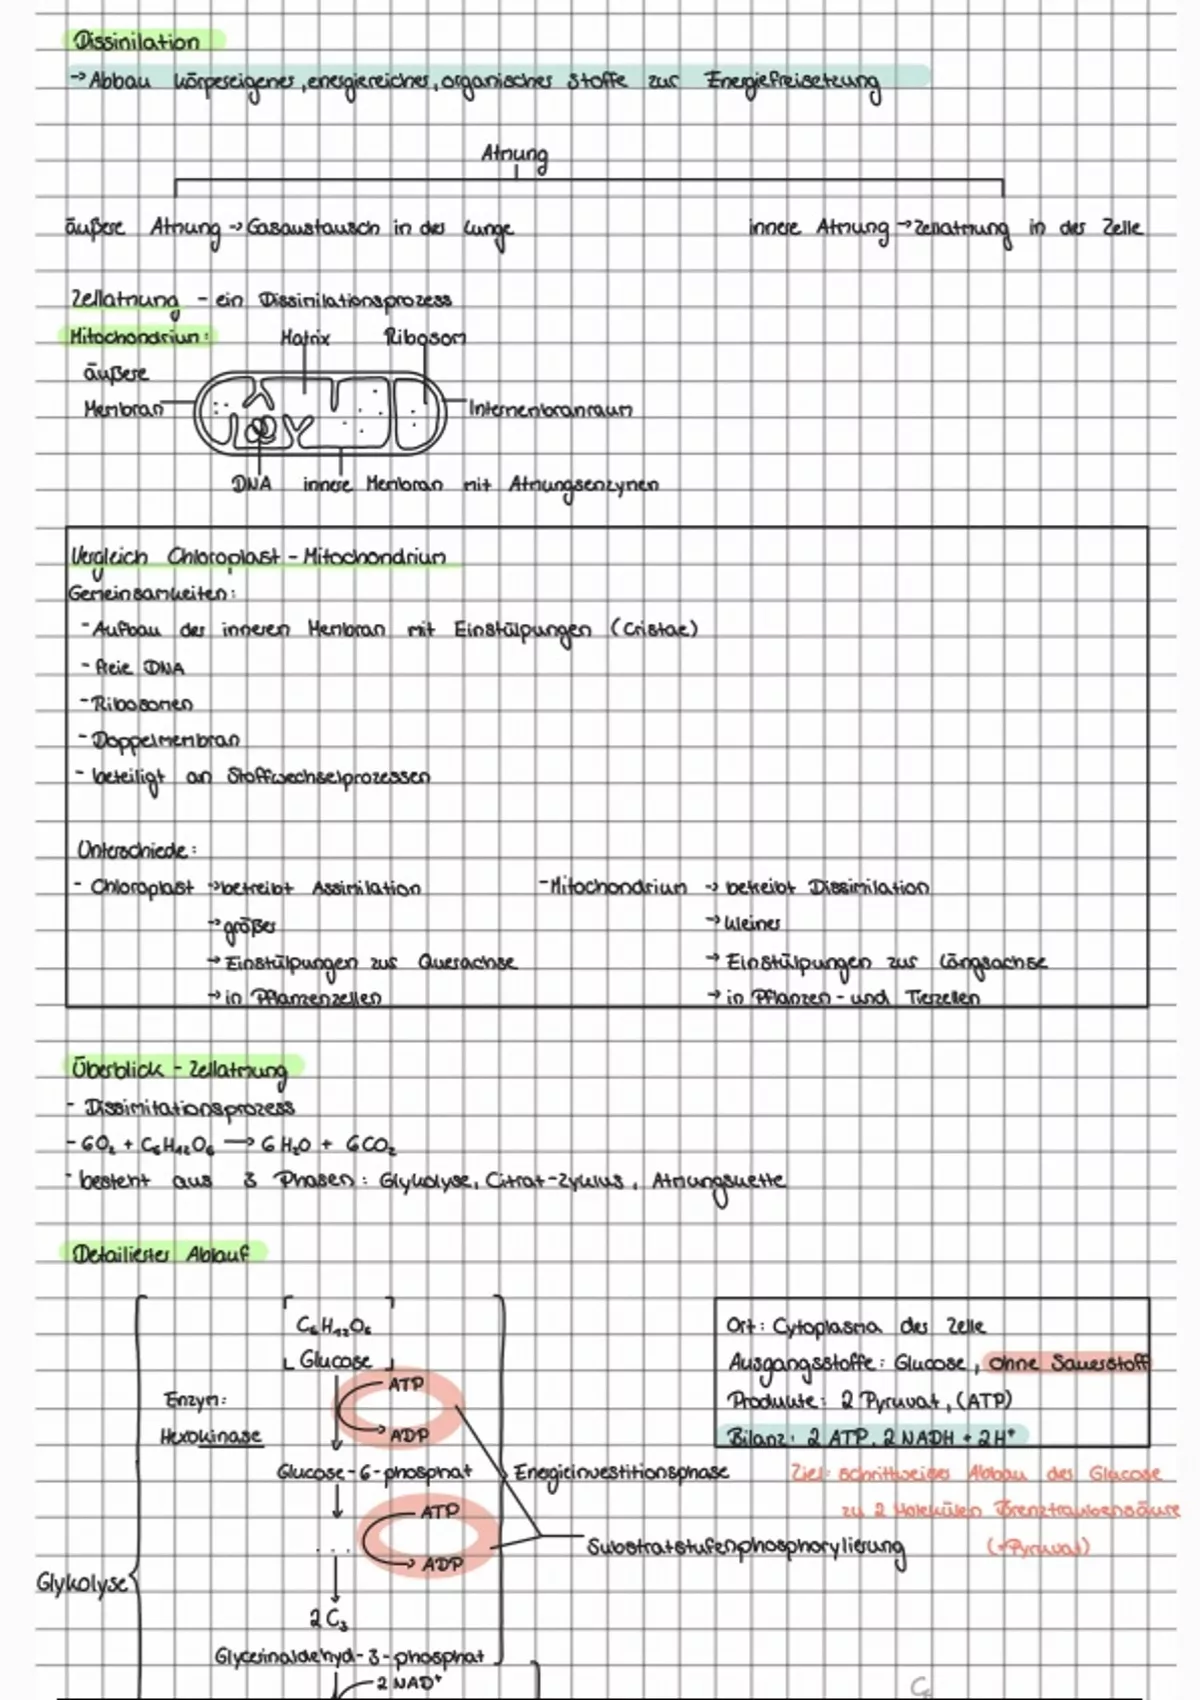 Dissimilation
→ Abbau körpereigener, energiereicher, organischer Stoffe zur Energiefreisetzung
Atmung
äußere Atmung → Gasaustausch in der Lunge
innere Atmung → Zellatmung in der Zelle
Zellatmung - ein Dissimilationsprozess
Mitochondrium:
Matrix
Ribosom
äußere
Membran
Intermembranraum
DNA
innere Membran mit Atmungsenzymen
Vergleich Chloroplast - Mitochondrium
Gemeinsamkeiten:
- Aufbau der inneren Membran mit Einstülpungen (Cristae)
- freie DNA
- Ribosomen
- Doppelmembran
- beteiligt an Stoffwechselprozessen
Unterschiede:
- Chloroplast → betreibt Assimilation
- Mitochondrium → betreibt Dissimilation
→ größer
→ kleiner
→ Einstülpungen zur Querachse
→ Einstülpungen zur Längsachse
→ in Pflanzenzellen
→ in Pflanzen- und Tierzellen
Überblick - Zellatmung
- Dissimitationsprozess
- 6O₂ + C₆H₁₂O₆ → 6 H₂O + 6CO₂
- besteht aus 3 Phasen: Glykolyse, Citrat-Zyklus, Atmungskette
Detailierter Ablauf
C₆H₁₂O₆
Glucose
ATP
Enzym:
Hexokinase
ADP
Glucose-6-phosphat
Energieinvestitionsphase
ATP
...
ADP
Substratstufenphosphorylierung
Glykolyse
2 C₃
Glycerinaldehyd-3-phosphat
2 NAD⁺
Ort: Cytoplasma der Zelle
Ausgangsstoffe: Glucose, ohne Sauerstoff
Produkte: 2 Pyruvat, (ATP)
Bilanz: 2 ATP, 2 NADH + 2H⁺
Ziel: schrittweiser Abbau der Glucose
zu 2 Molekülen Brenztraubensäure
(→Pyruvat)